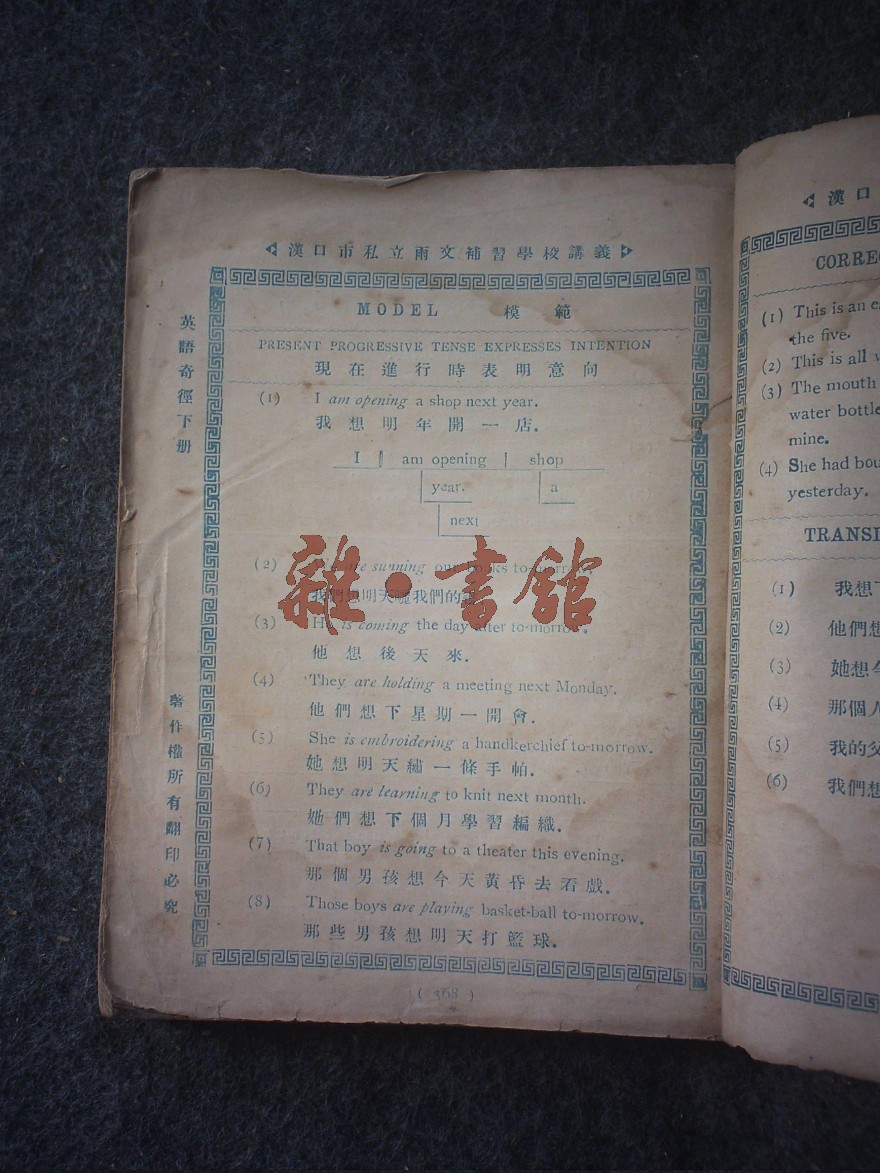 漢口市私立雨文補習學校講義
MODEL 模範
PRESENT PROGRESSIVE TENSE EXPRESSES INTENTION
現在進行時表明意向
(1) I am opening a shop next year.
我想明年開一店.
I am opening shop
year. a
next
(2) are sunning our books to-morrow.
我們想明天曬我們的
(3) He is coming the day after to-morrow.
他想後天來.
(4) They are holding a meeting next Monday.
他們想下星期一開會.
(5) She is embroidering a handkerchief to-morrow.
她想明天繡一條手帕.
(6) They are learning to knit next month.
她們想下個月學習編織.
(7) That boy is going to a theater this evening.
那個男孩想今天黃昏去看戲.
(8) Those boys are playing basket-ball to-morrow.
那些男孩想明天打籃球.
( 368 )
英語奇徑下册
著作權所有翻印必究
雜·書館
漢口
CORREC
(1) This is an
the five.
(2) This is all
(3) The mouth
water bottle
mine.
(4) She had bou
yesterday.
TRANSL
(1) 我想下
(2) 他們想
(3) 她想今
(4) 那個人
(5) 我的父
(6) 我們想